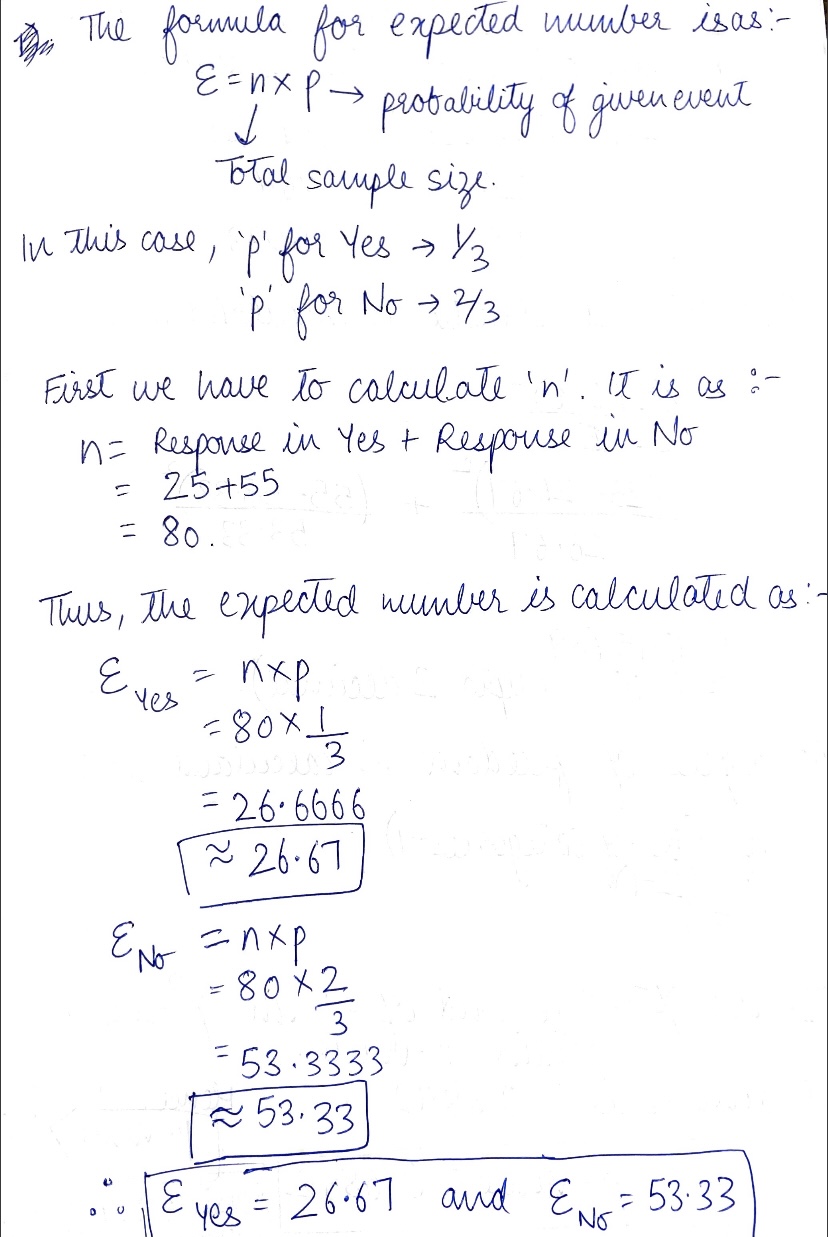 The formula for expected number is as:-
Ɛ = n × p → probability of given event
↓
Total sample size.
In this case, 'p' for Yes → 1/3
'p' for No → 2/3
First we have to calculate 'n'. It is as :-
n = Response in Yes + Response in No
= 25+55
= 80.
Thus, the expected number is calculated as:-
Ɛ Yes = n×p
= 80 × 1/3
= 26.6666
≈ 26.67
Ɛ No = n×p
= 80 × 2/3
= 53.3333
≈ 53.33
∴ Ɛ Yes = 26.67 and Ɛ No = 53.33